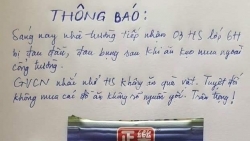 THÔNG BÁO:
Sáng nay nhà trường tiếp nhận 03 HS lớp 6H
bị đau đầu, đau bụng sau khi ăn kẹo mua ngoài
cổng trường.
GVCN nhắc nhở HS không ăn quà vặt. Tuyệt đối
không mua các đồ ăn không rõ nguồn gốc. Trân trọng!